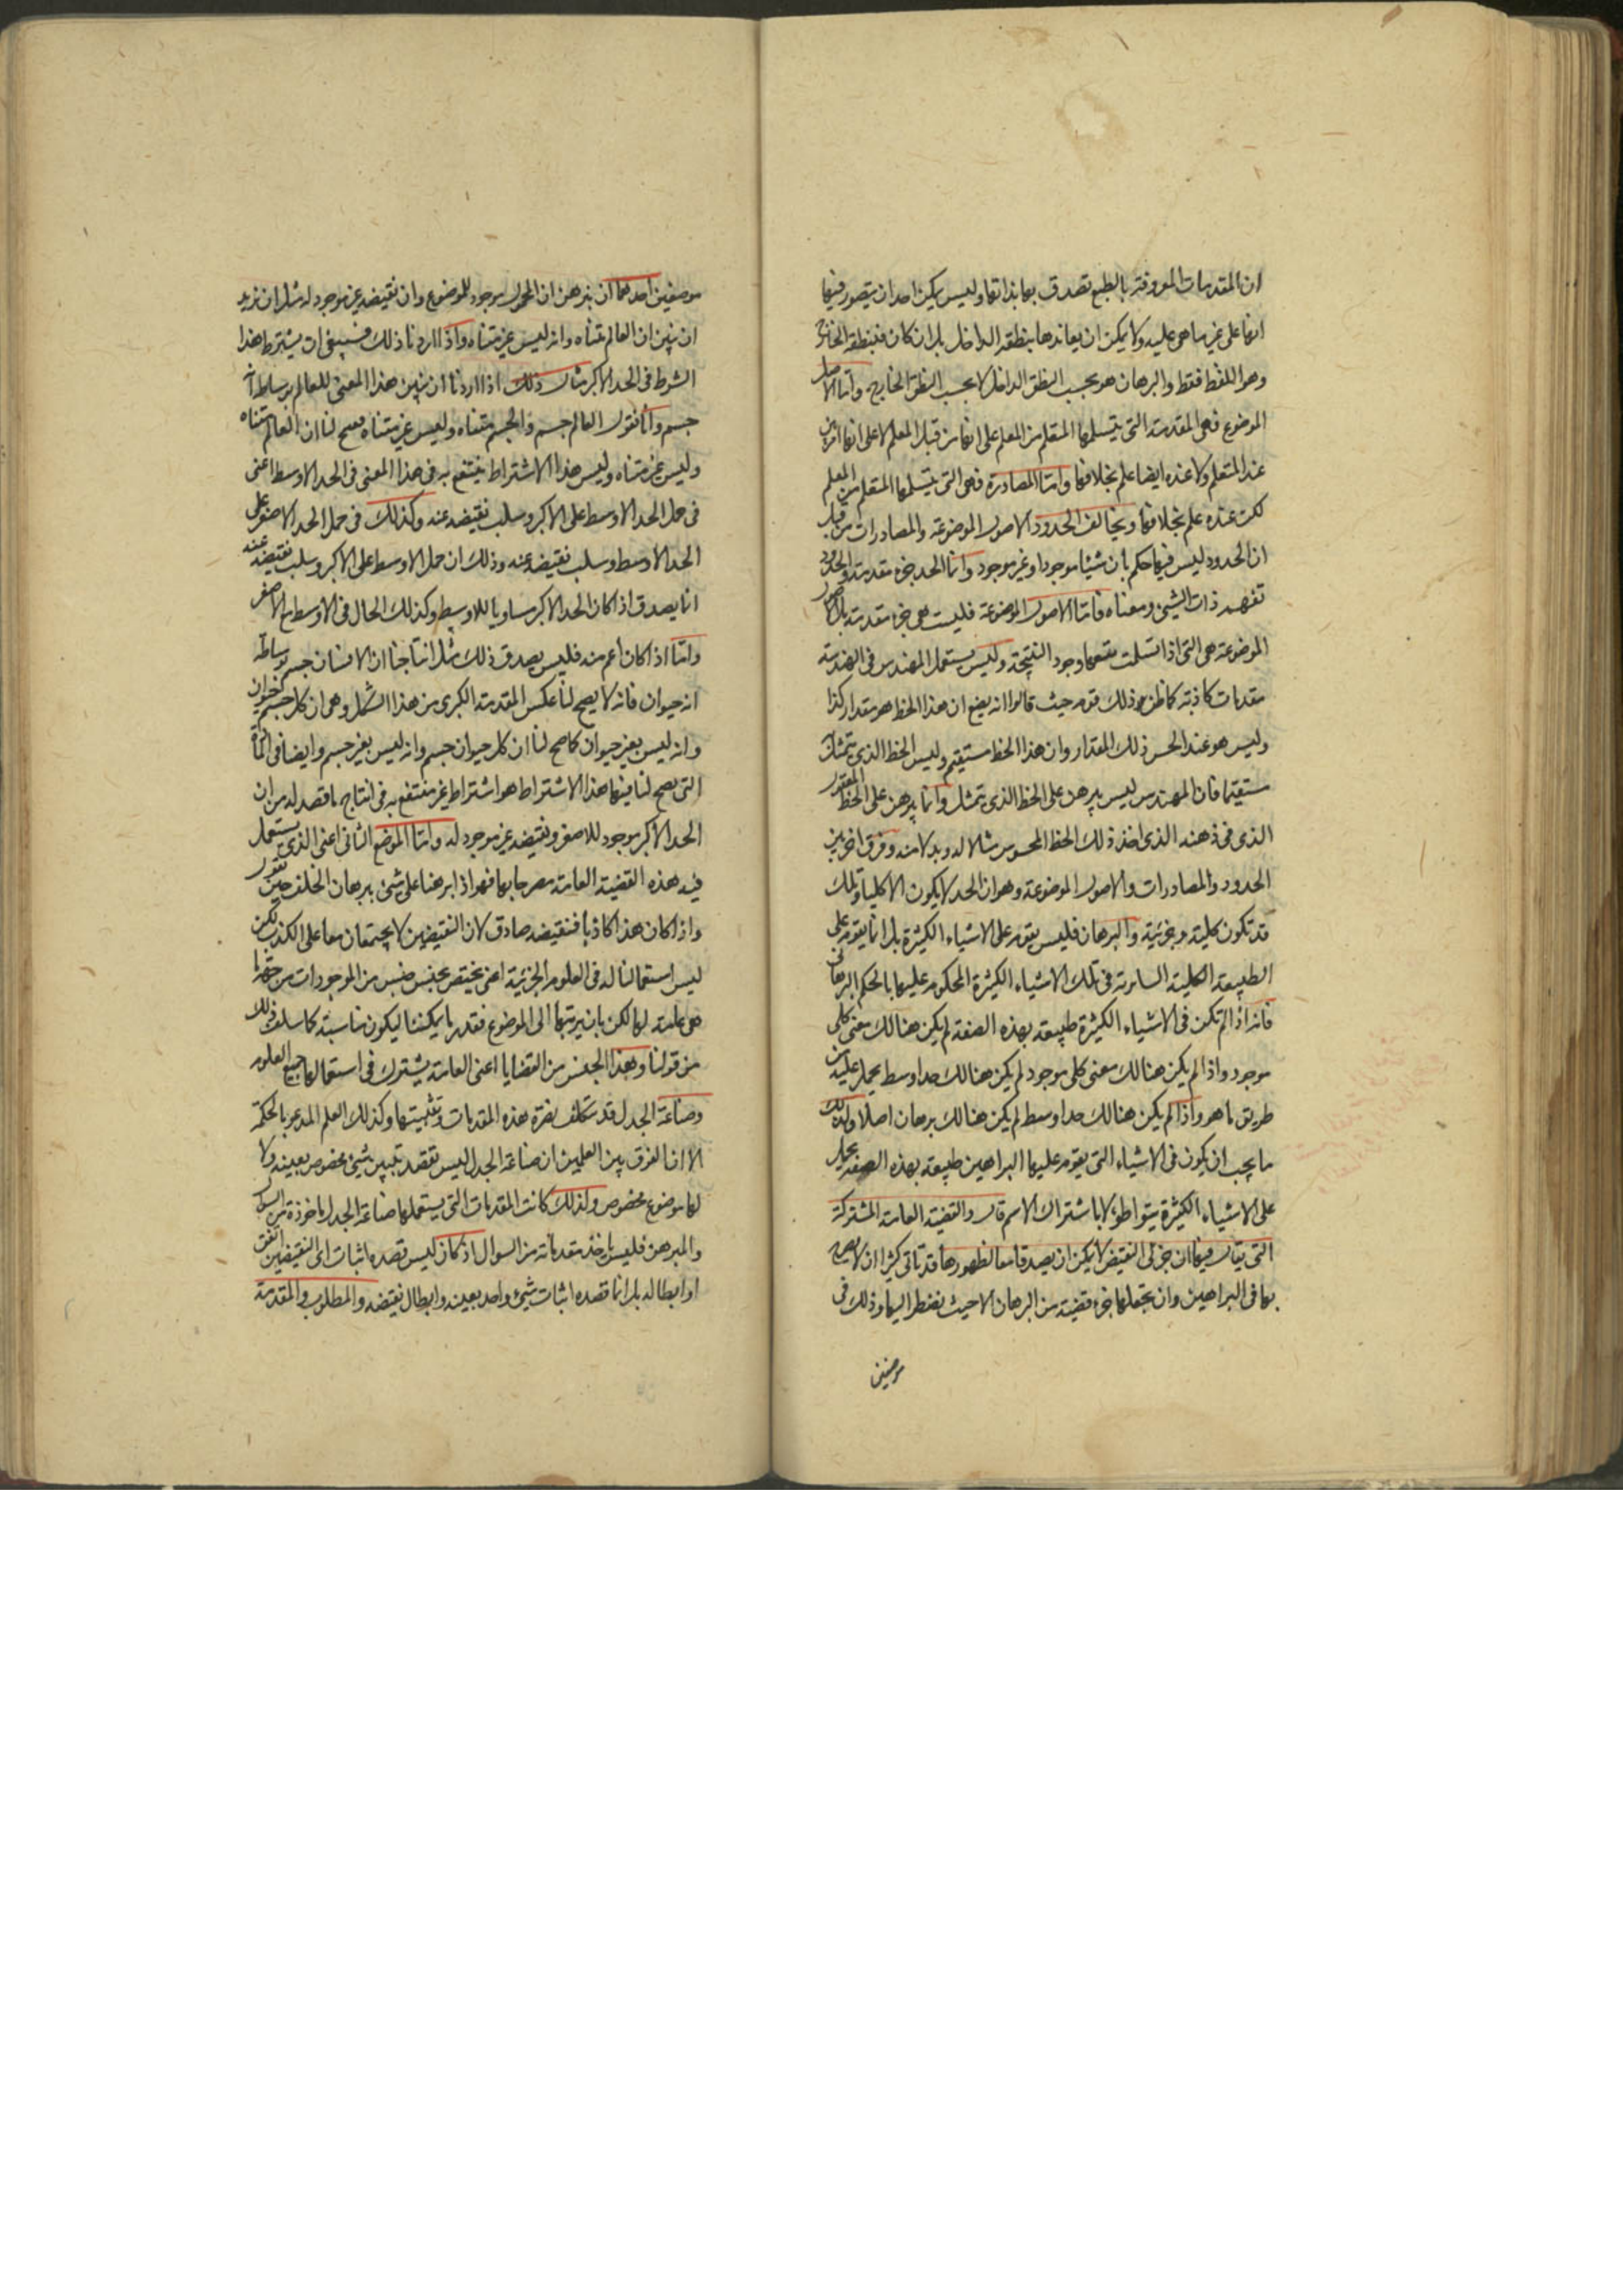 ان المقدمات المعروفة بالطبع تصدق بها بذاتها وليس يمكن احد ان يتصور فيها
انها على غير ما هى عليه ولا يمكن ان يعاندها بنطقه الداخل بل ان كان فبنطقه الخارج
وهو اللفظ فقط والبرهان هو بحسب النطق الداخل لا بحسب النطق الخارج واما الاصل
الموضوع فهى المقدمة التى يتسلمها المتعلم من المعلم على انها من قبل المعلم لا على انها امر بين
عند المتعلم ولا عنده ايضا علم بخلافها واما المصادرة فهى التى يتسلمها المتعلم من المعلم
لكن عنده علم بخلافها ويخالف الحدود الاصول الموضوعة والمصادرات من قبل
ان الحدود ليس فيها حكم بان شيئا موجود او غير موجود وانما الحد جزء مقدمة والحدود
تفهم ذات الشىء ومعناه فاما الاصول الموضوعة فليست هى جزء مقدمة بل الاصول
الموضوعة هى التى اذا تسلمت تبعها وجود النتيجة وليس يستعمل المهندس فى الهندسة
مقدمات كاذبة كما ظن ذلك قوم حيث قالوا انه يضع ان هذا الخط هو مقدار كذا
وليس هو عند الحس ذلك المقدار وان هذا الخط مستقيم وليس الخط الذى يتمثله
مستقيما فان المهندس ليس يبرهن على الخط الذى يتمثل وانما يبرهن على الخط المعقول
الذى فى ذهنه الذى اخذ ذلك الخط المحسوس مثالا له وبدلا منه وفرق اخر بين
الحدود والمصادرات والاصول الموضوعة وهو ان الحد لا يكون الا كليا وتلك
قد تكون كلية وجزئية والبرهان فليس يقوم على الاشياء الكثيرة بل انما يقوم على
الطبيعة الكلية السارية فى تلك الاشياء الكثيرة المحكوم عليها بالحكم البرهانى
فانه اذا لم تكن فى الاشياء الكثيرة طبيعة بهذه الصفة لم يكن هنالك معنى كلى
موجود واذا لم يكن هنالك معنى كلى موجود لم يكن هنالك حد اوسط يحمل عليه من
طريق ما هو واذا لم يكن هنالك حد اوسط لم يكن هنالك برهان اصلا ولذلك
ما يجب ان يكون فى الاشياء التى يقوم عليها البراهين طبيعة بهذه الصفة تحمل
على الاشياء الكثيرة بتواطؤ لا باشتراك الاسم قال والقضية العامة المشتركة
التى يقال فيها ان جزئى النقيض لا يمكن ان يصدقا معا لظهورها قد تأتى كثيرا ان لا يصرح
بها فى البراهين وان تجعلها جزء قضية من البرهان الا حيث نضطر اليها وذلك فى
موضعين
موضعين احدهما ان نبرهن ان المحمول موجود للموضوع وان نقيضه غير موجود له مثل ان نريد
ان نبين ان العالم متناه وانه ليس غير متناه واذا اردنا ذلك فينبغى ان يشترط هذا
الشرط فى الحد الاكبر مثال ذلك اذا اردنا ان نبين هذا المعنى للعالم بوساطة انه
جسم وانا نقول العالم جسم والجسم متناه وليس غير متناه فصح لنا ان العالم متناه
وليس غير متناه وليس هذا الاشتراط ينتفع به فى هذا المعنى فى الحد الاوسط اعنى
فى حمل الحد الاوسط على الاكبر وسلب نقيضه عنه وكذلك فى حمل الحد الاصغر على
الحد الاوسط وسلب نقيضه عنه وذلك ان حمل الاوسط على الاكبر وسلب نقيضه عنه
انما يصدق اذا كان الحد الاكبر مساويا للاوسط وكذلك الحال فى الاوسط مع الاصغر
واما اذا كان اعم منه فليس يصدق ذلك مثل انتاجنا ان الانسان جسم بوساطة
انه حيوان فانه لا يصح لنا عكس المقدمة الكبرى من هذا الشكل وهى ان كل جسم حيوان
وانه ليس بغير حيوان كما صح لنا ان كل حيوان جسم وانه ليس بغير جسم وايضا فى المادة
التى يصح لنا فيها هذا الاشتراط هو اشتراط غير منتفع به فى انتاج ما قصد له من ان
الحد الاكبر موجود للاصغر ونقيضه غير موجود له واما الموضع الثانى اعنى الذى يستعمل
فيه هذه القضية العامة مصرحا بها فهو اذا برهنا على شىء ببرهان الخلف حين نقول
واذا كان هذا كاذبا فنقيضه صادق لان النقيضين لا يجتمعان معا على الكذب لكن
ليس استعمالنا له فى العلوم الجزئية اعنى يختص بجنس جنس من الموجودات من جهة ما
هى عامة لها لكن بان نردتها الى الموضوع فقدر ما يمكننا ليكون مناسبة كما سلف ذلك
من قولنا وهذا الجنس من القضايا اعنى العامة يشترك فى استعمالها جميع العلوم
وصناعة الجدل قد تتكلف نصرة هذه المقدمات وتثبيتها وكذلك العلم المدعو بالحكمة
الا ان الفرق بين العلمين ان صناعة الجدل ليس تقصد تبيين شىء مخصوص بعينه ولا
لها موضوع مخصوص ولذلك كانت المقدمات التى يستعملها صناعة الجدل ماخوذة من السؤال
والمبرهن فليس ياخذ مقدماته من السوال اذ كان ليس قصده اثبات اى النقيضين اتفق
او ابطاله بل انما قصده اثبات شىء واحد بعينه وابطال نقيضه والمطلوب والمقدمة